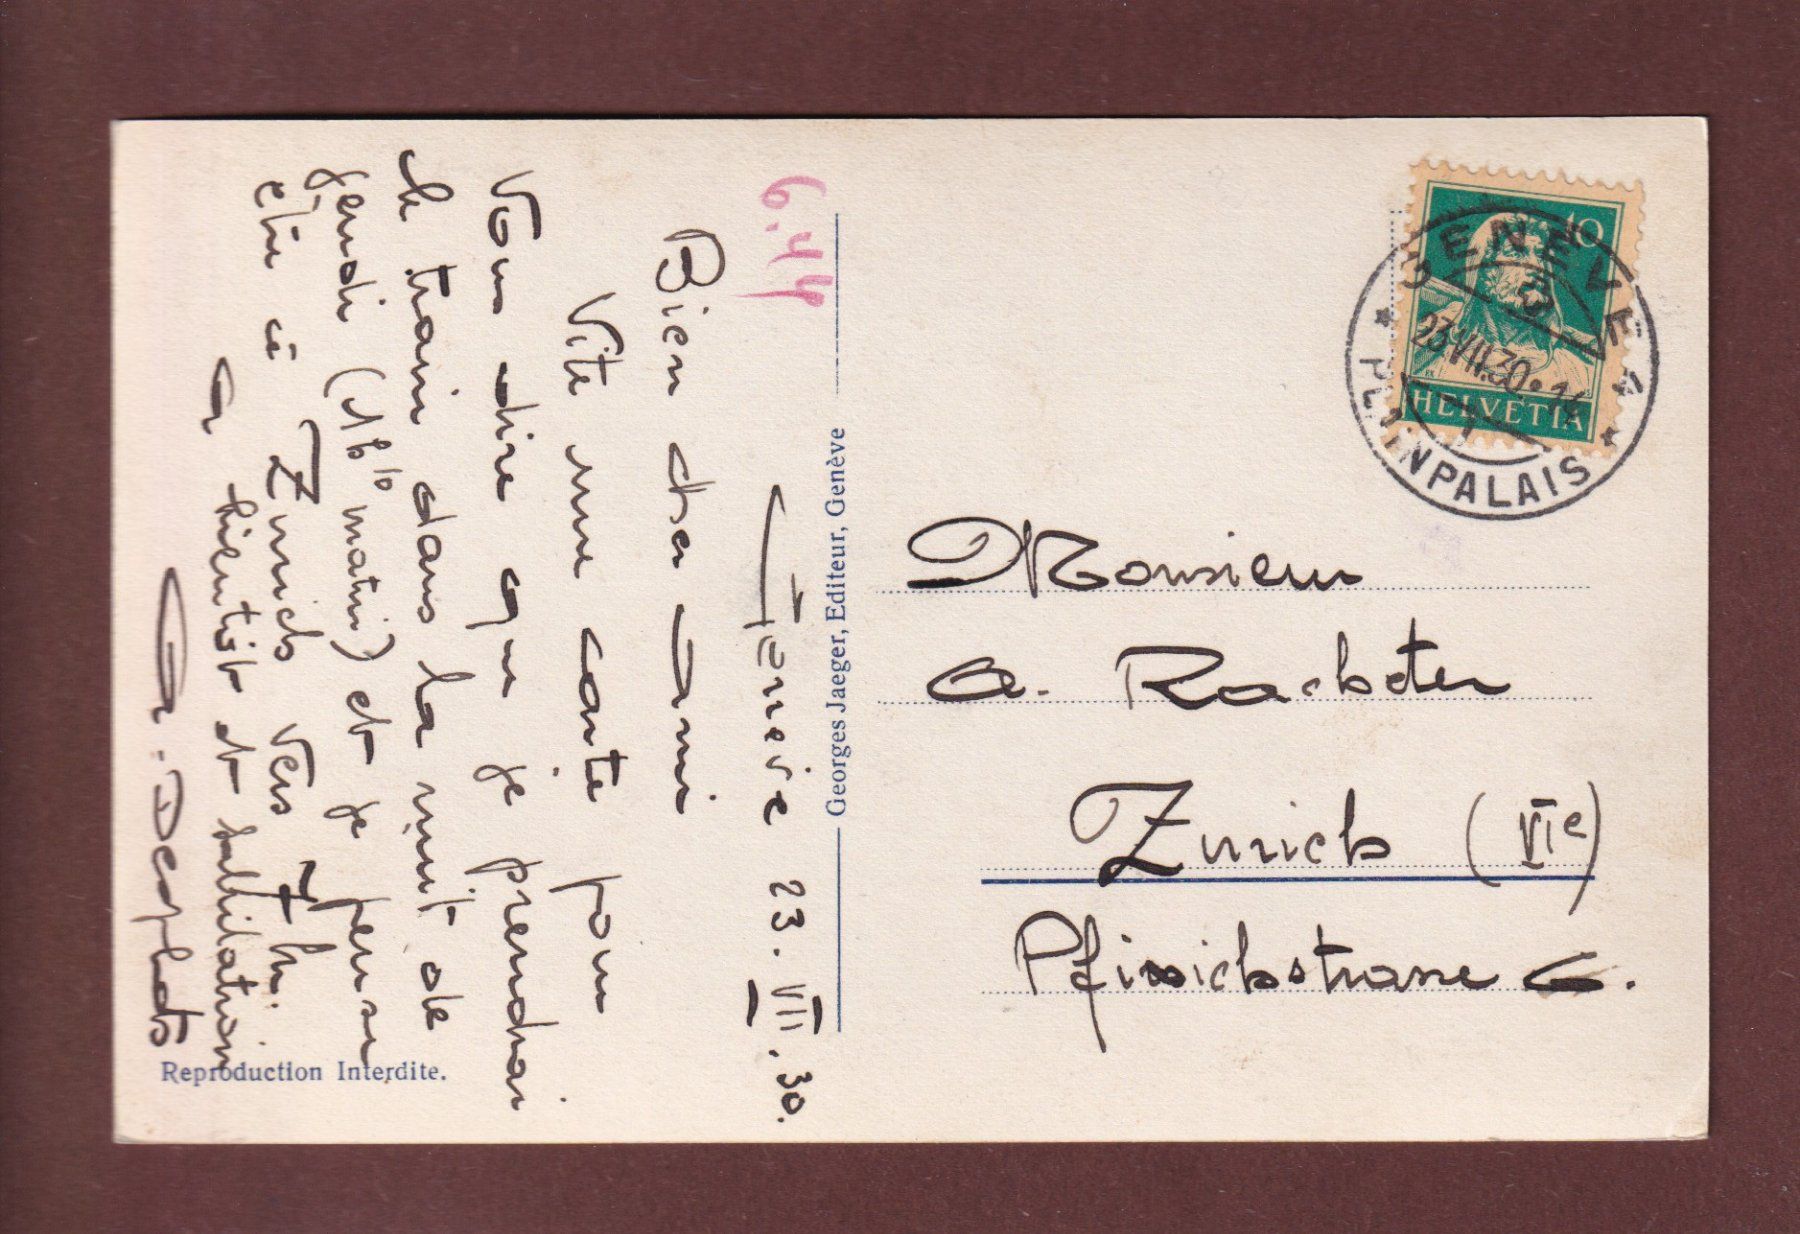 Genève 23.VII.30.
Bien cher ami
Vite une carte pour
vous dire que je prendrai
le train dans la nuit de
jeudi (1h 10 matin) et je pense
etre à Zurich vers 7 h.
A bientôt et salutation
G. Desplats
6.44
Georges Jaeger, Editeur, Genève
Reproduction Interdite.
10
HELVETIA
GENÈVE 4
23.VII.30.
PLAINPALAIS
Monsieur
A.
Zurich (VIe)
6.